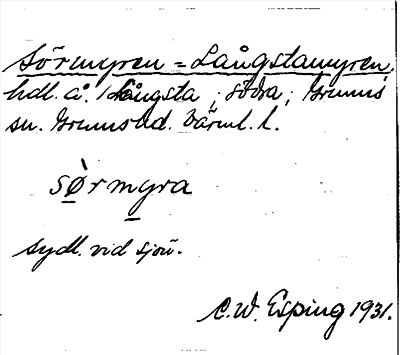 Sörmyren = Långstamyren,
hdl. å. Långsta, södra, Grums
sn. Grums hd. Värml. l.
sørmyra
sydl. vid sjön.
C.W. Esping 1931.